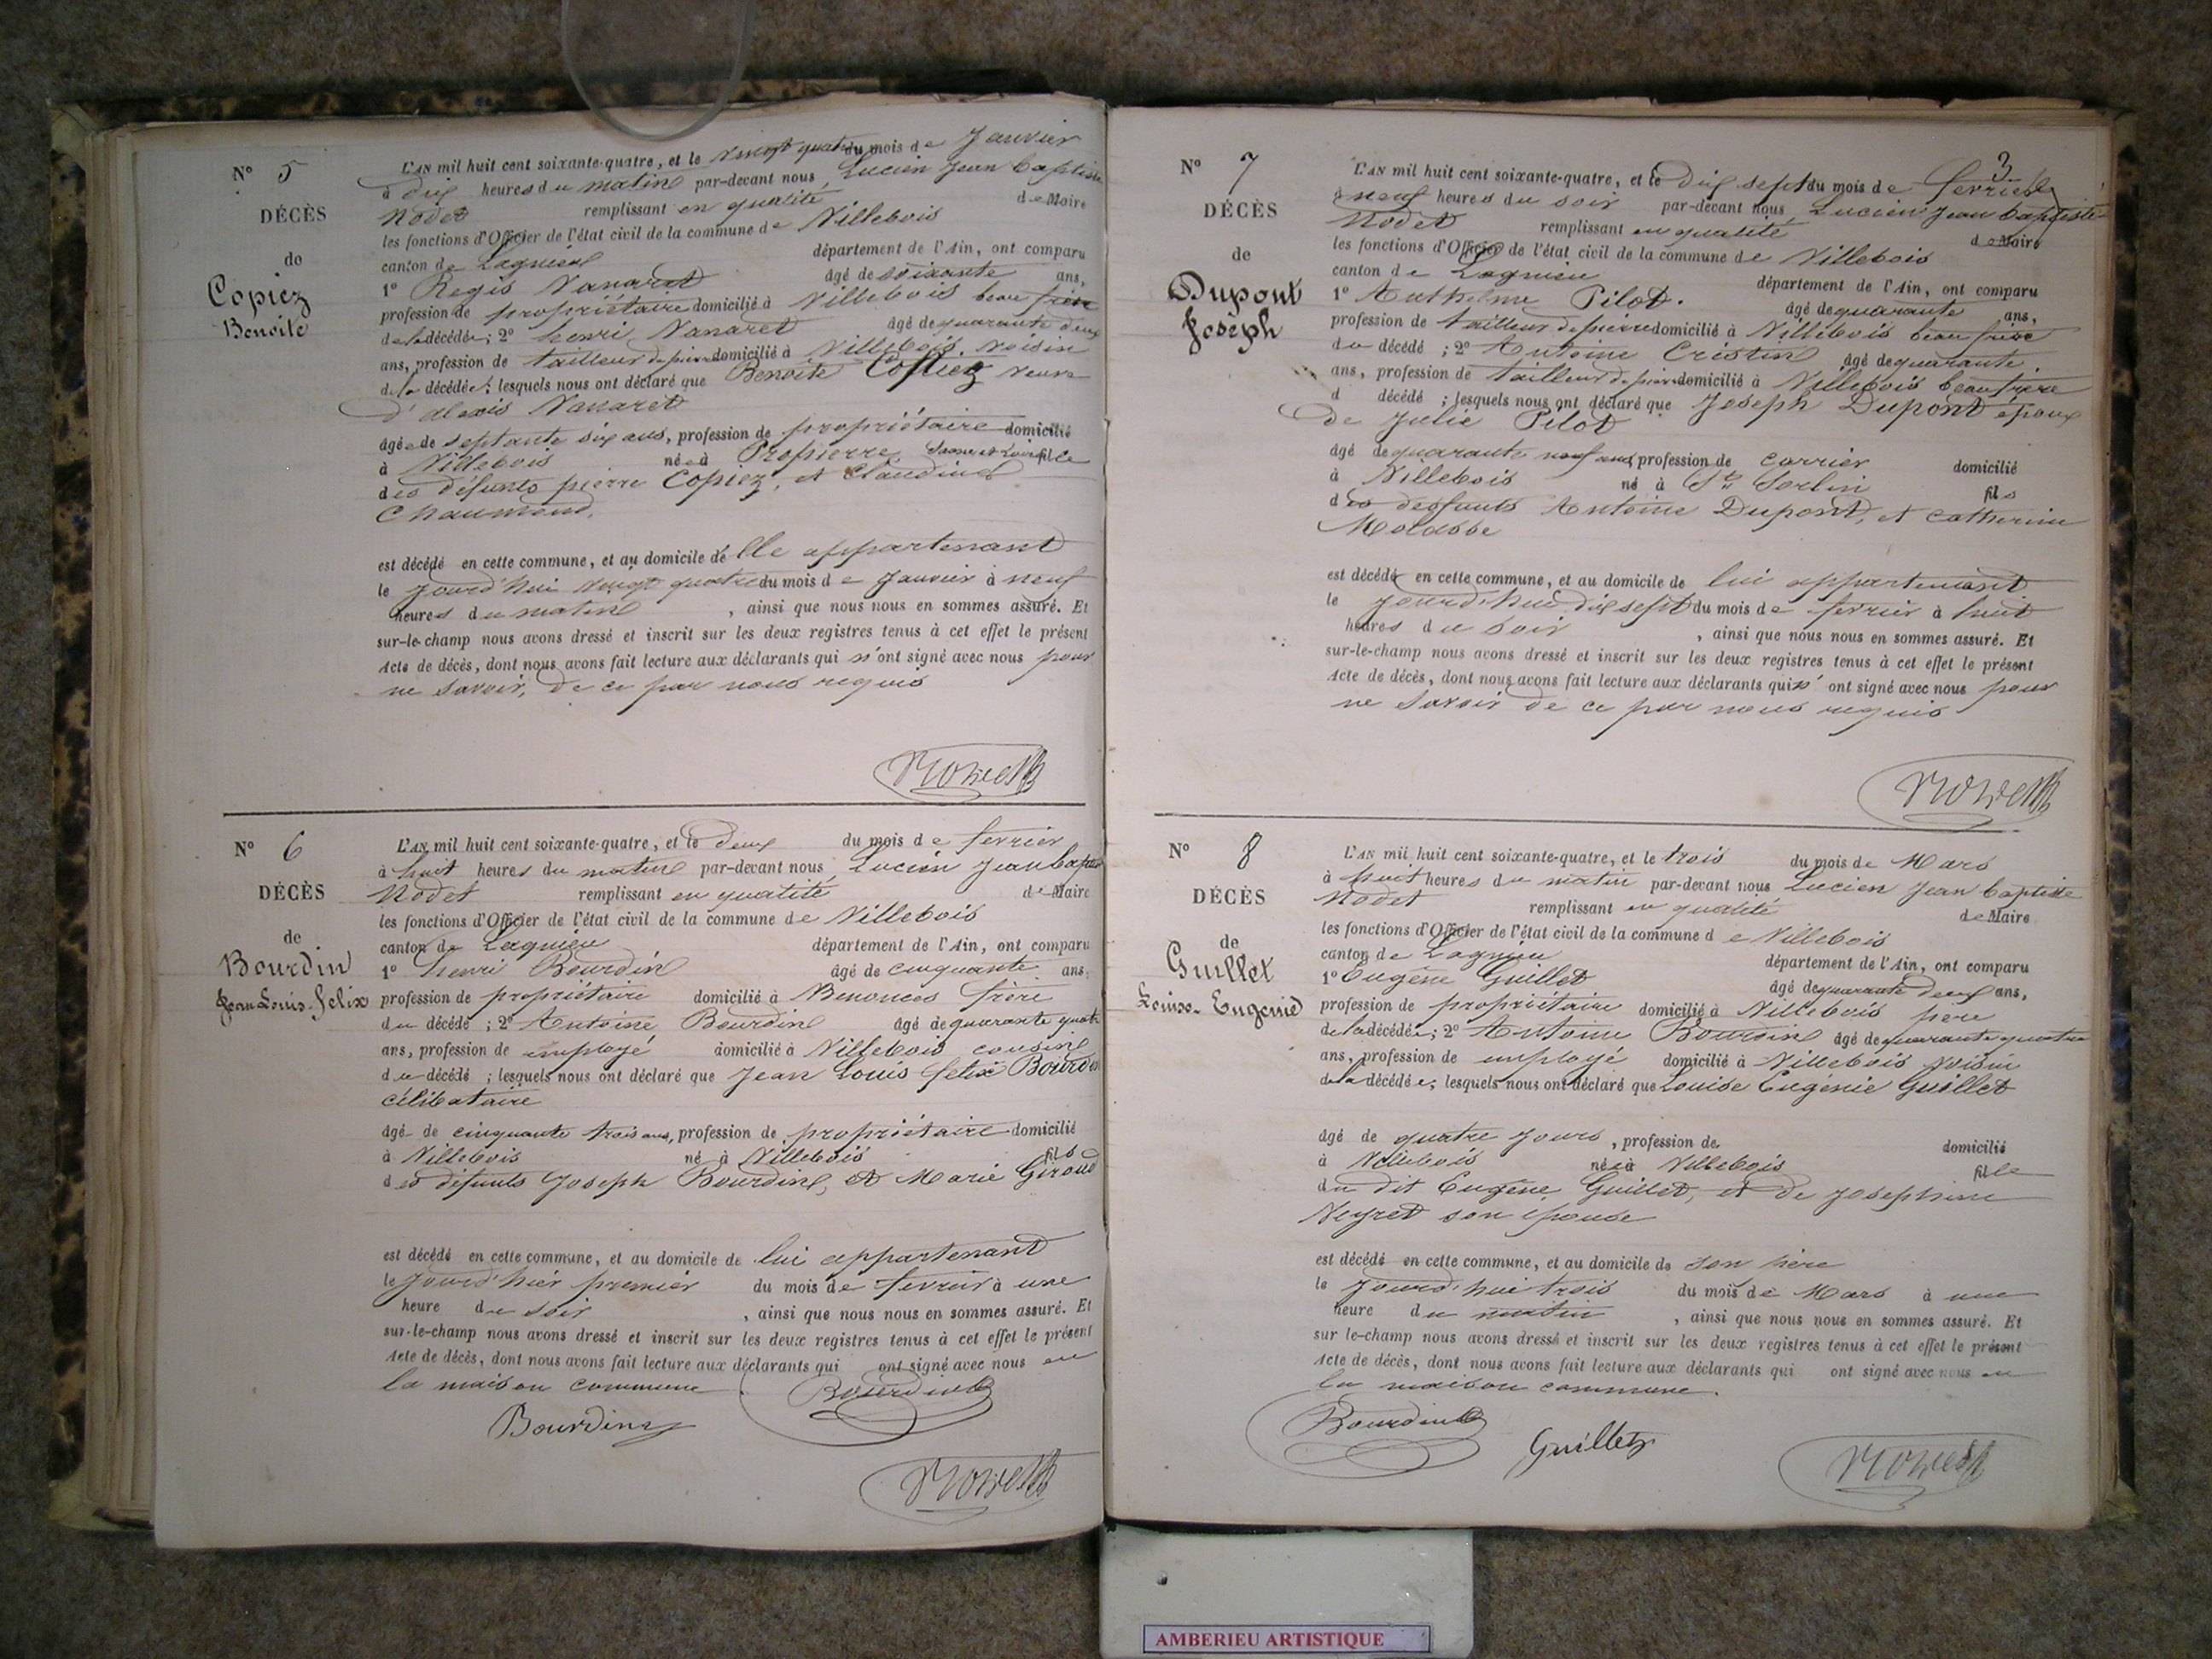 N° 5
DÉCÈS
de
Copiez
Benoite
L'AN mil huit cent soixante-quatre, et le vingt quatre du mois de Janvier
à dix heures du matin par-devant nous Lucien Jean baptiste
Nodet remplissant en qualité de Maire
les fonctions d'Officier de l'état civil de la commune de Villebois
canton de Lagnieu département de l'Ain, ont comparu
1° Regis Vanaret âgé de soixante ans,
profession de propriétaire domicilié à Villebois beau frère
de la décédée; 2° henri Vanaret âgé de quarante deux
ans, profession de tailleur de pierre domicilié à Villebois voisin
de la décédée; lesquels nous ont déclaré que Benoite Copiez veuve
d'alexis Vanaret
âgée de septante six ans, profession de propriétaire domicilié
à Villebois née à Propierre Saone et Loire fille
des défunts pierre Copiez, et Claudine
Chaumond.
est décédé en cette commune, et au domicile d'elle appartenant
le Jourd'hui vingt quatre du mois de Janvier à neuf
heures du matin, ainsi que nous nous en sommes assuré. Et
sur-le-champ nous avons dressé et inscrit sur les deux registres tenus à cet effet le présent
Acte de décès, dont nous avons fait lecture aux déclarants qui n'ont signé avec nous pour
ne savoir, de ce par nous requis
Nodet
N° 6
DÉCÈS
de
Bourdin
Jean Louis felix
L'AN mil huit cent soixante-quatre, et le deux du mois de fevrier
à huit heures du matin par-devant nous Lucien Jean bapti
Nodet remplissant en qualité de Maire
les fonctions d'Officier de l'état civil de la commune de Villebois
canton de Lagnieu département de l'Ain, ont comparu
1° henri Bourdin âgé de cinquante ans,
profession de propriétaire domicilié à Benonces frère
du décédé; 2° Antoine Bourdin âgé de quarante quatr
ans, profession de employé domicilié à Villebois cousin
du décédé; lesquels nous ont déclaré que Jean Louis felix Bourdin
célibataire
âgé de cinquante trois ans, profession de propriétaire domicilié
à Villebois né à Villebois fils
des défunts Joseph Bourdin, et Marie Giroud
est décédé en cette commune, et au domicile de lui appartenant
le Jourd'hier premier du mois de fevrier à une
heure du soir, ainsi que nous nous en sommes assuré. Et
sur-le-champ nous avons dressé et inscrit sur les deux registres tenus à cet effet le présent
Acte de décès, dont nous avons fait lecture aux déclarants qui ont signé avec nous en
la maison commune. Bourdin
Bourdin
Nodet
3
N° 7
DÉCÈS
de
Dupont
Joseph
L'AN mil huit cent soixante-quatre, et le dix sept du mois de fevrier
à neuf heures du soir par-devant nous Lucien Jean baptiste
Nodet remplissant en qualité de Maire
les fonctions d'Officier de l'état civil de la commune de Villebois
canton de Lagnieu département de l'Ain, ont comparu
1° Anthelme Pilot. âgé de quarante ans,
profession de tailleur de pierre domicilié à Villebois beau frère
du décédé; 2° Antoine Cristin âgé de quarante
ans, profession de tailleur de pierre domicilié à Villebois beau frere
d décédé; lesquels nous ont déclaré que Joseph Dupont époux
de Julie Pilot
âgé de quarante neuf ans, profession de carrier domicilié
à Villebois né à St Sorlin fils
des deffunts Antoine Dupont, et Catherine
Molasse
est décédé en cette commune, et au domicile de lui appartenant
le Jourd'hui dix sept du mois de fevrier à huit
heures du soir, ainsi que nous nous en sommes assuré. Et
sur-le-champ nous avons dressé et inscrit sur les deux registres tenus à cet effet le présent
Acte de décès, dont nous avons fait lecture aux déclarants qui n'ont signé avec nous pour
ne savoir de ce par nous requis
Nodet
N° 8
DÉCÈS
de
Guillet
Louise Eugenie
L'AN mil huit cent soixante-quatre, et le trois du mois de Mars
à huit heures du matin par-devant nous Lucien Jean baptiste
Nodet remplissant en qualité de Maire
les fonctions d'Officier de l'état civil de la commune de Villebois
canton de Lagnieu département de l'Ain, ont comparu
1° Eugène Guillet âgé de quarante deux ans,
profession de propriétaire domicilié à Villebois père
de la décédée; 2° Antoine Bourdin âgé de quarante quatre
ans, profession de employé domicilié à Villebois voisin
de la décédée; lesquels nous ont déclaré que Louise Eugénie Guillet
âgé de quatre jours, profession de domicilié
à Villebois née à Villebois fille
du dit Eugène Guillet, et de Josephine
Neyret son épouse
est décédé en cette commune, et au domicile de son père
le Jourd'hui trois du mois de Mars à une
heure du matin, ainsi que nous nous en sommes assuré. Et
sur le-champ nous avons dressé et inscrit sur les deux registres tenus à cet effet le présent
Acte de décès, dont nous avons fait lecture aux déclarants qui ont signé avec nous en
la maison commune.
Bourdin
Guillet
Nodet
AMBERIEU ARTISTIQUE